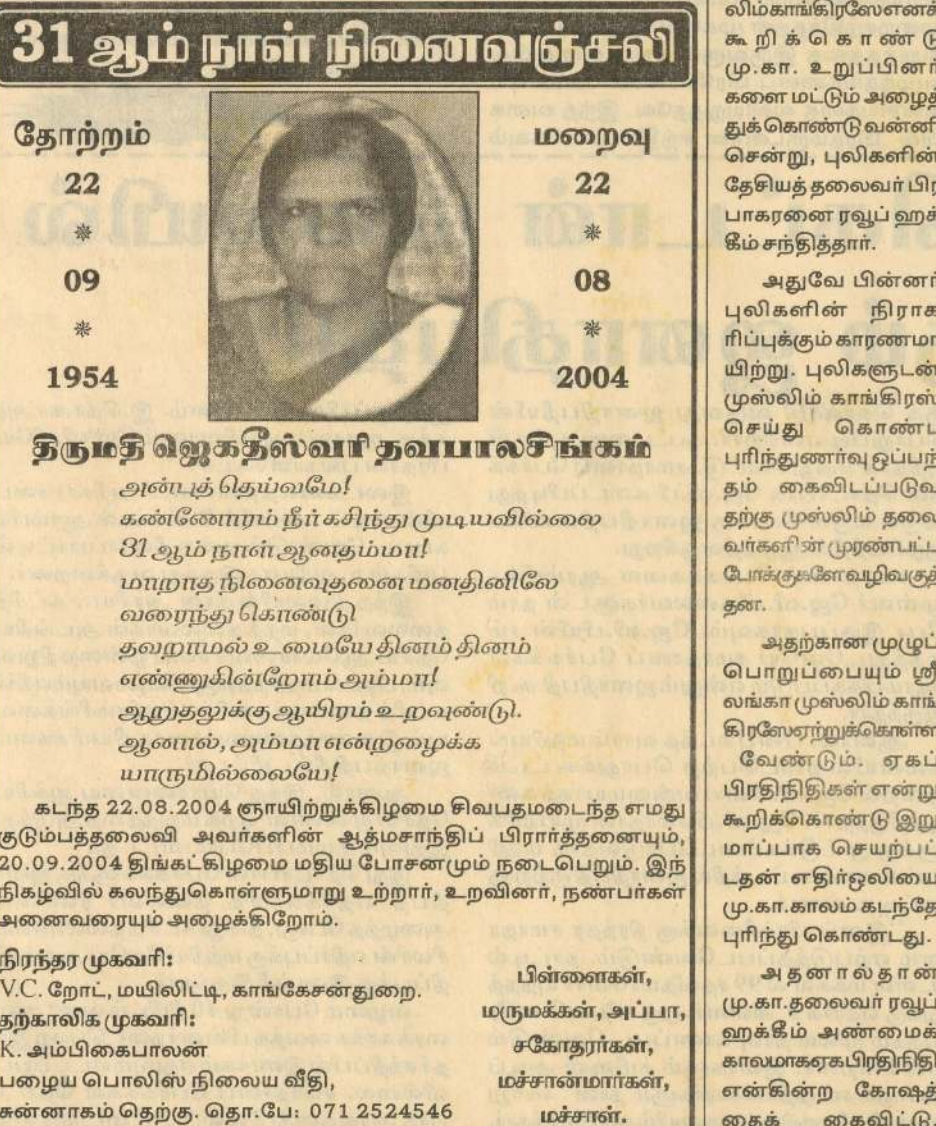 31 ஆம் நாள் நினைவஞ்சலி
தோற்றம்
22
*
09
*
1954
மறைவு
22
*
08
*
2004
திருமதி ஜெகதீஸ்வரி தவபாலசிங்கம்
அன்புத் தெய்வமே!
கண்ணோரம் நீர் கசிந்து முடியவில்லை
31 ஆம் நாள் ஆனதம்மா!
மாறாத நினைவுதனை மனதினிலே
வரைந்து கொண்டு
தவறாமல் உமையே தினம் தினம்
எண்ணுகின்றோம் அம்மா!
ஆறுதலுக்கு ஆயிரம் உறவுண்டு.
ஆனால், அம்மா என்றழைக்க
யாருமில்லையே!
கடந்த 22.08.2004 ஞாயிற்றுக்கிழமை சிவபதமடைந்த எமது
குடும்பத்தலைவி அவர்களின் ஆத்மசாந்திப் பிரார்த்தனையும்,
20.09.2004 திங்கட்கிழமை மதிய போசனமும் நடைபெறும். இந்
நிகழ்வில் கலந்துகொள்ளுமாறு உற்றார், உறவினர், நண்பர்கள்
அனைவரையும் அழைக்கிறோம்.
நிரந்தர முகவரி:
V.C. றோட், மயிலிட்டி, காங்கேசன்துறை.
தற்காலிக முகவரி:
K. அம்பிகைபாலன்
பழைய பொலிஸ் நிலைய வீதி,
சுன்னாகம் தெற்கு. தொ.பே: 071 2524546
பிள்ளைகள்,
மருமக்கள், அப்பா,
சகோதரர்கள்,
மச்சான்மார்கள்,
மச்சாள்.
லிம்காங்கிரஸே எனக்
கூறிக்கொண்டு
மு.கா. உறுப்பினர்
களை மட்டும் அழைத்
துக் கொண்டு வன்னி
சென்று, புலிகளின்
தேசியத் தலைவர் பிர
பாகரனை ரவூப் ஹக்
கீம் சந்தித்தார்.
அதுவே பின்னர்
புலிகளின் நிராக
ரிப்புக்கும் காரணமா
யிற்று. புலிகளுடன்
முஸ்லிம் காங்கிரஸ்
செய்து கொண்ட
புரிந்துணர்வு ஒப்பந்
தம் கைவிடப்படுவ
தற்கு முஸ்லிம் தலை
வர்களின் முரண்பட்ட
போக்குகளே வழிவகுத்
தன.
அதற்கான முழுப்
பொறுப்பையும் ஸ்ரீ
லங்கா முஸ்லிம் காங்
கிரஸே ஏற்றுக்கொள்ள
வேண்டும். ஏகப்
பிரதிநிதிகள் என்று
கூறிக்கொண்டு இறு
மாப்பாக செயற்பட்
டதன் எதிர்ஒலியை
மு.கா.காலம் கடந்தே
புரிந்து கொண்டது.
அதனால்தான்
மு.கா.தலைவர் ரவூப்
ஹக்கீம் அண்மைக்
காலமாக ஏகபிரதிநிதி
என்கின்ற கோஷத்
தைக் கைவிட்டு,